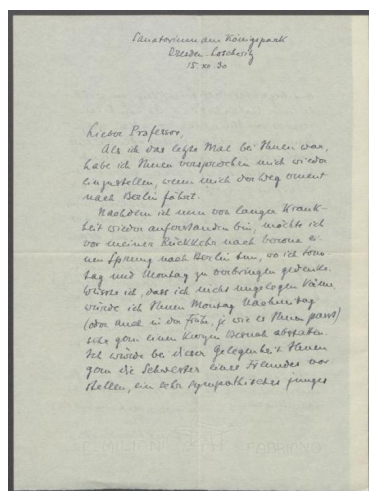 Sanatorium am Königspark
Dresden-Loschwitz
15. XI. 30
Lieber Professor,
Als ich das letzte Mal bei Ihnen war,
habe ich Ihnen versprochen mich wieder
einzustellen, wenn mich der Weg erneut
nach Berlin führt.
Nachdem ich nun von langer Krank-
heit wieder auferstanden bin, möchte ich
vor meiner Rückkehr nach Verona ei-
nen Sprung nach Berlin tun, wo ich Sonn-
tag und Montag zu verbringen gedenke.
Wüsste ich, dass ich nicht ungelegen käme,
würde ich Ihnen Montag Nachmittag
(oder auch in der Frühe, je wie es Ihnen passt)
sehr gern einen kurzen Besuch abstatten.
Ich würde bei dieser Gelegenheit Ihnen
gern die Schwester eines Freundes vor
stellen, ein sehr sympathisches junges